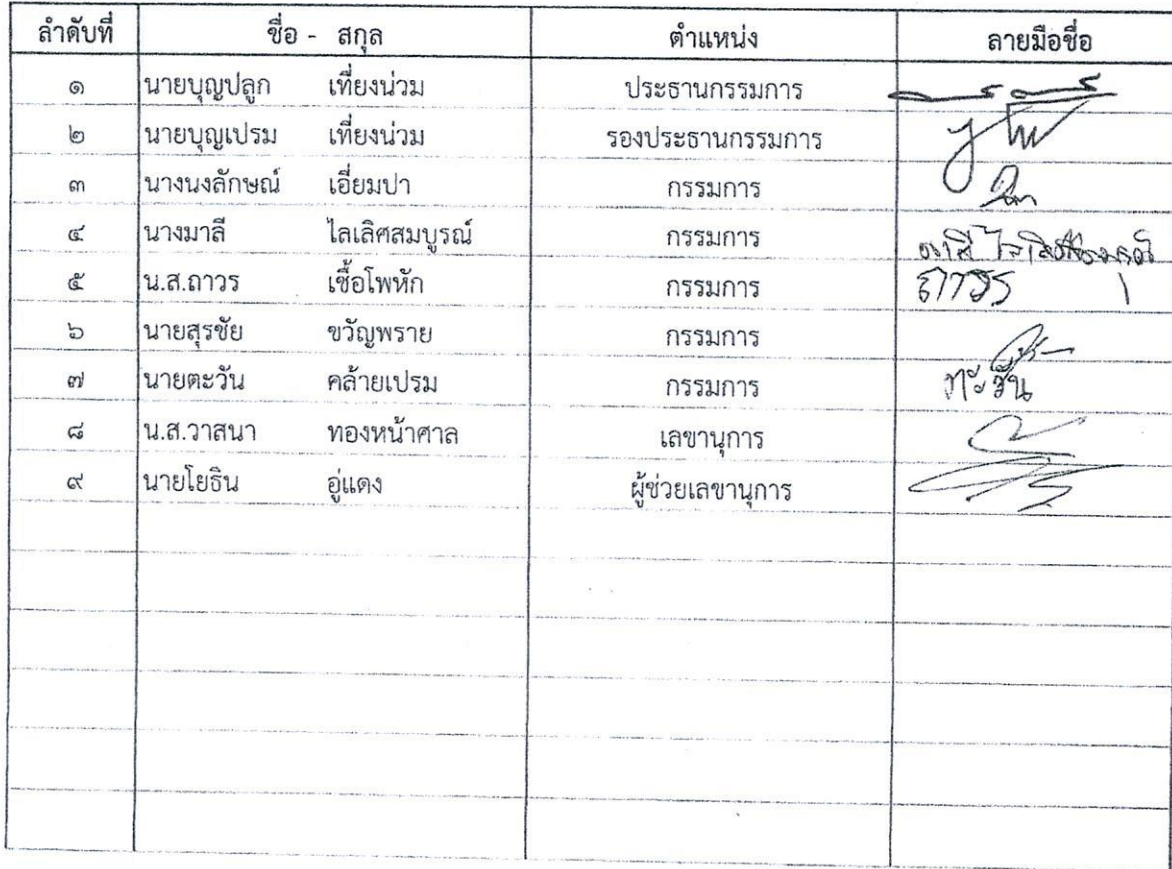 ลำดับที่ ชื่อ - สกุล ตำแหน่ง ลายมือชื่อ
๑ นายบุญปลูก เที่ยงน่วม ประธานกรรมการ
๒ นายบุญเปรม เที่ยงน่วม รองประธานกรรมการ
๓ นางนงลักษณ์ เอี่ยมปา กรรมการ
๔ นางมาลี ไลเลิศสมบูรณ์ กรรมการ
๕ น.ส.ถาวร เชื้อโพหัก กรรมการ ถาวร
๖ นายสุรชัย ขวัญพราย กรรมการ
๗ นายตะวัน คล้ายเปรม กรรมการ ตะวัน
๘ น.ส.วาสนา ทองหน้าศาล เลขานุการ
๙ นายโยธิน อู่แดง ผู้ช่วยเลขานุการ